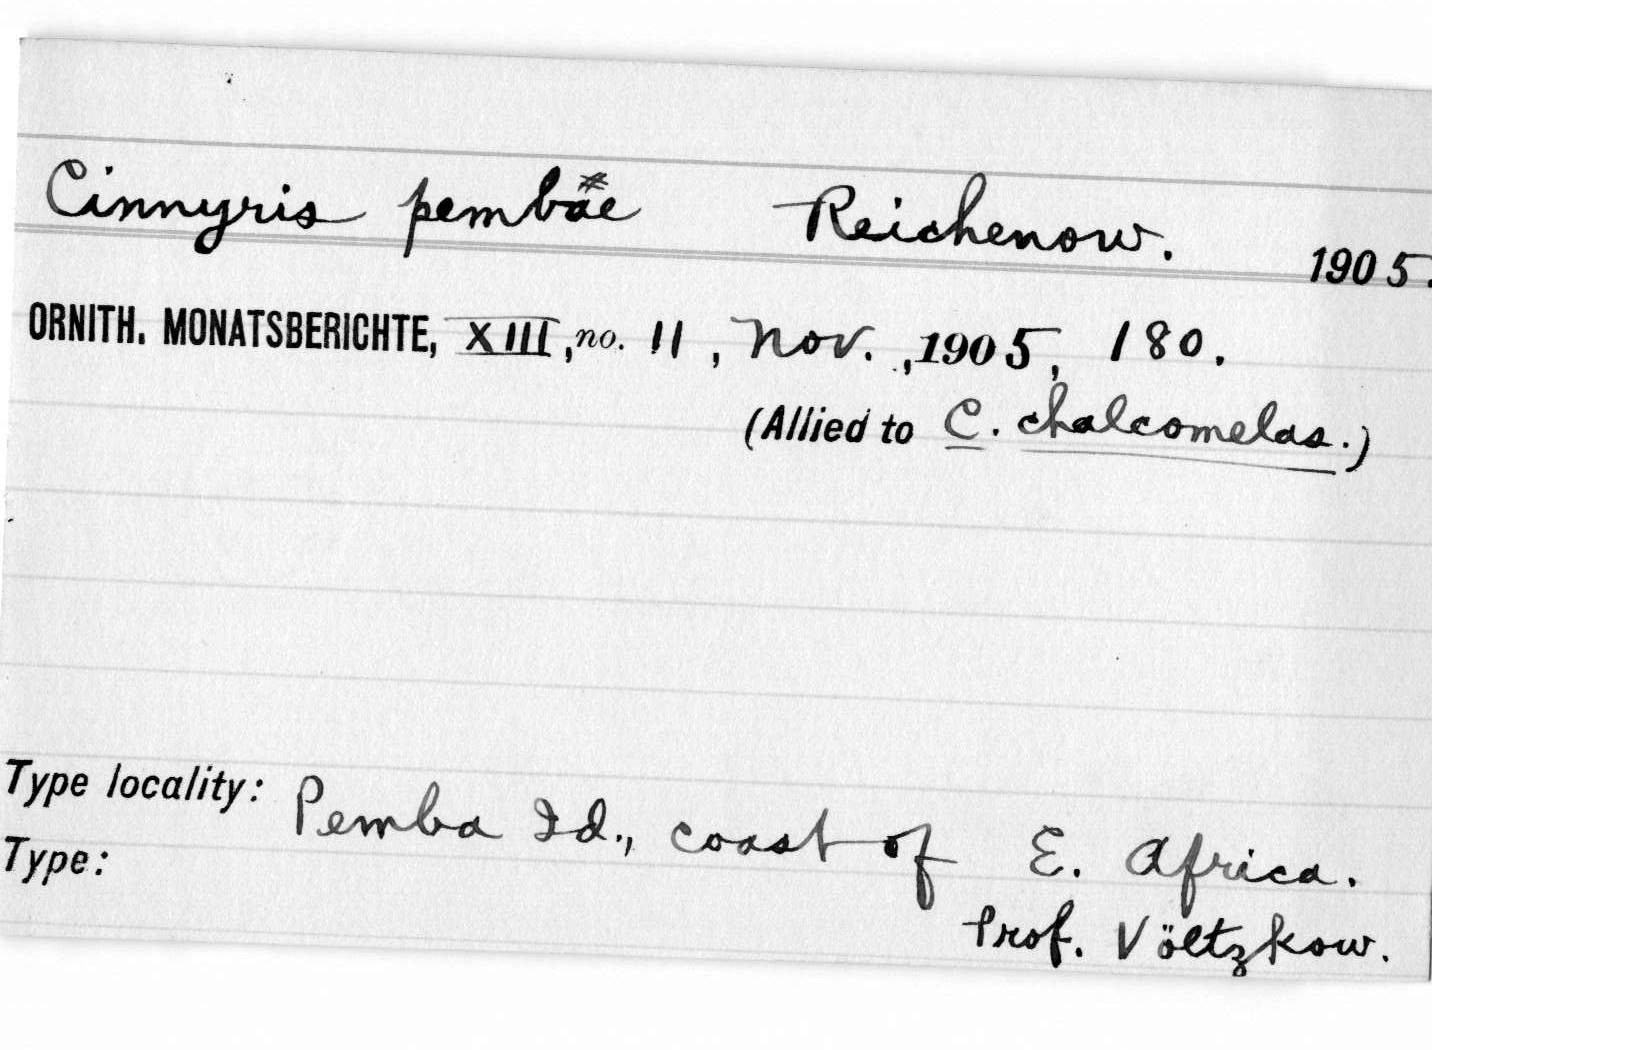 Cinnyris pembae Reichenow. 1905.
ORNITH. MONATSBERICHTE, XIII, no. 11, Nov., 1905, 180.
(Allied to C. chalcomelas.)
Type locality: Pemba Id., coast of E. Africa.
Type:
Prof. Völtzkow.